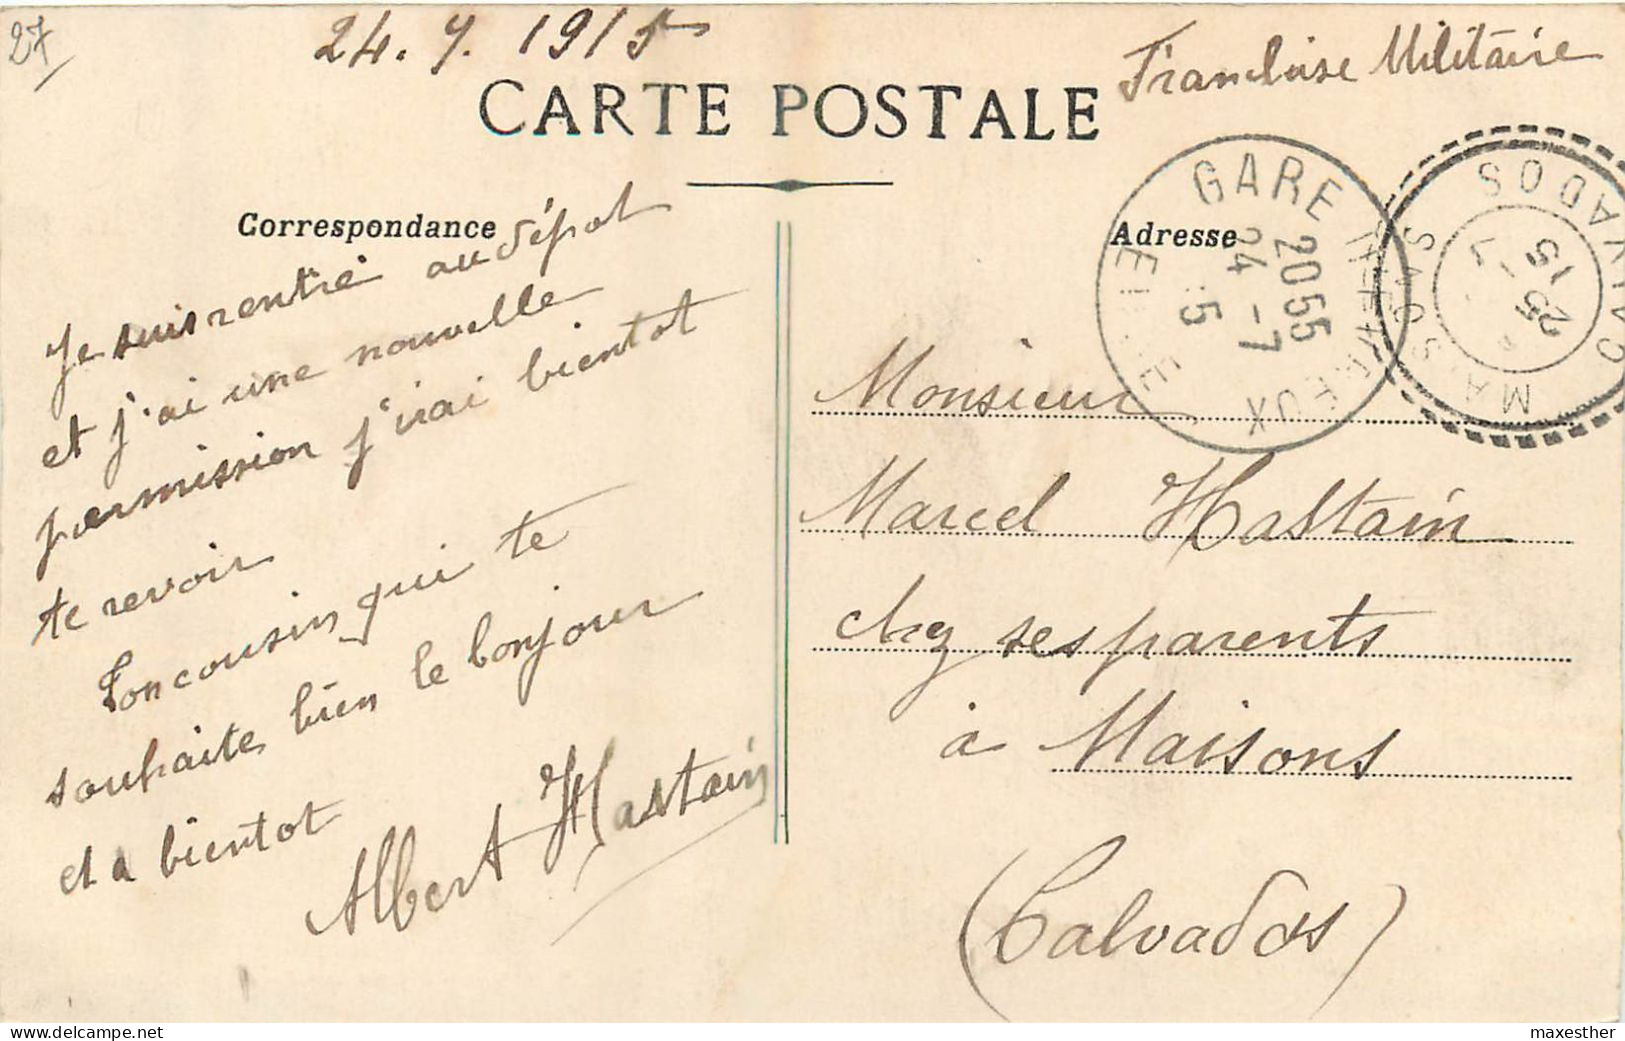 27
24. 7. 1915
Franchise Militaire
CARTE POSTALE
Correspondance
Adresse
GARE
20 55
24 -7
15
CALVADOS
25 -7
15
Je suis rentré au dépot
et j'ai une nouvelle
permission j'irai bientot
te revoir
Ton cousin qui te
souhaite bien le bonjour
et a bientot
Albert Hastain
Monsieur
Marcel Hastain
chez ses parents
à Maisons
(Calvados)
maxesther